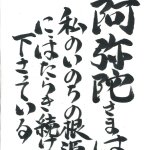 阿弥陀さまは
私のいのちの根源
にはたらき続け
下さている